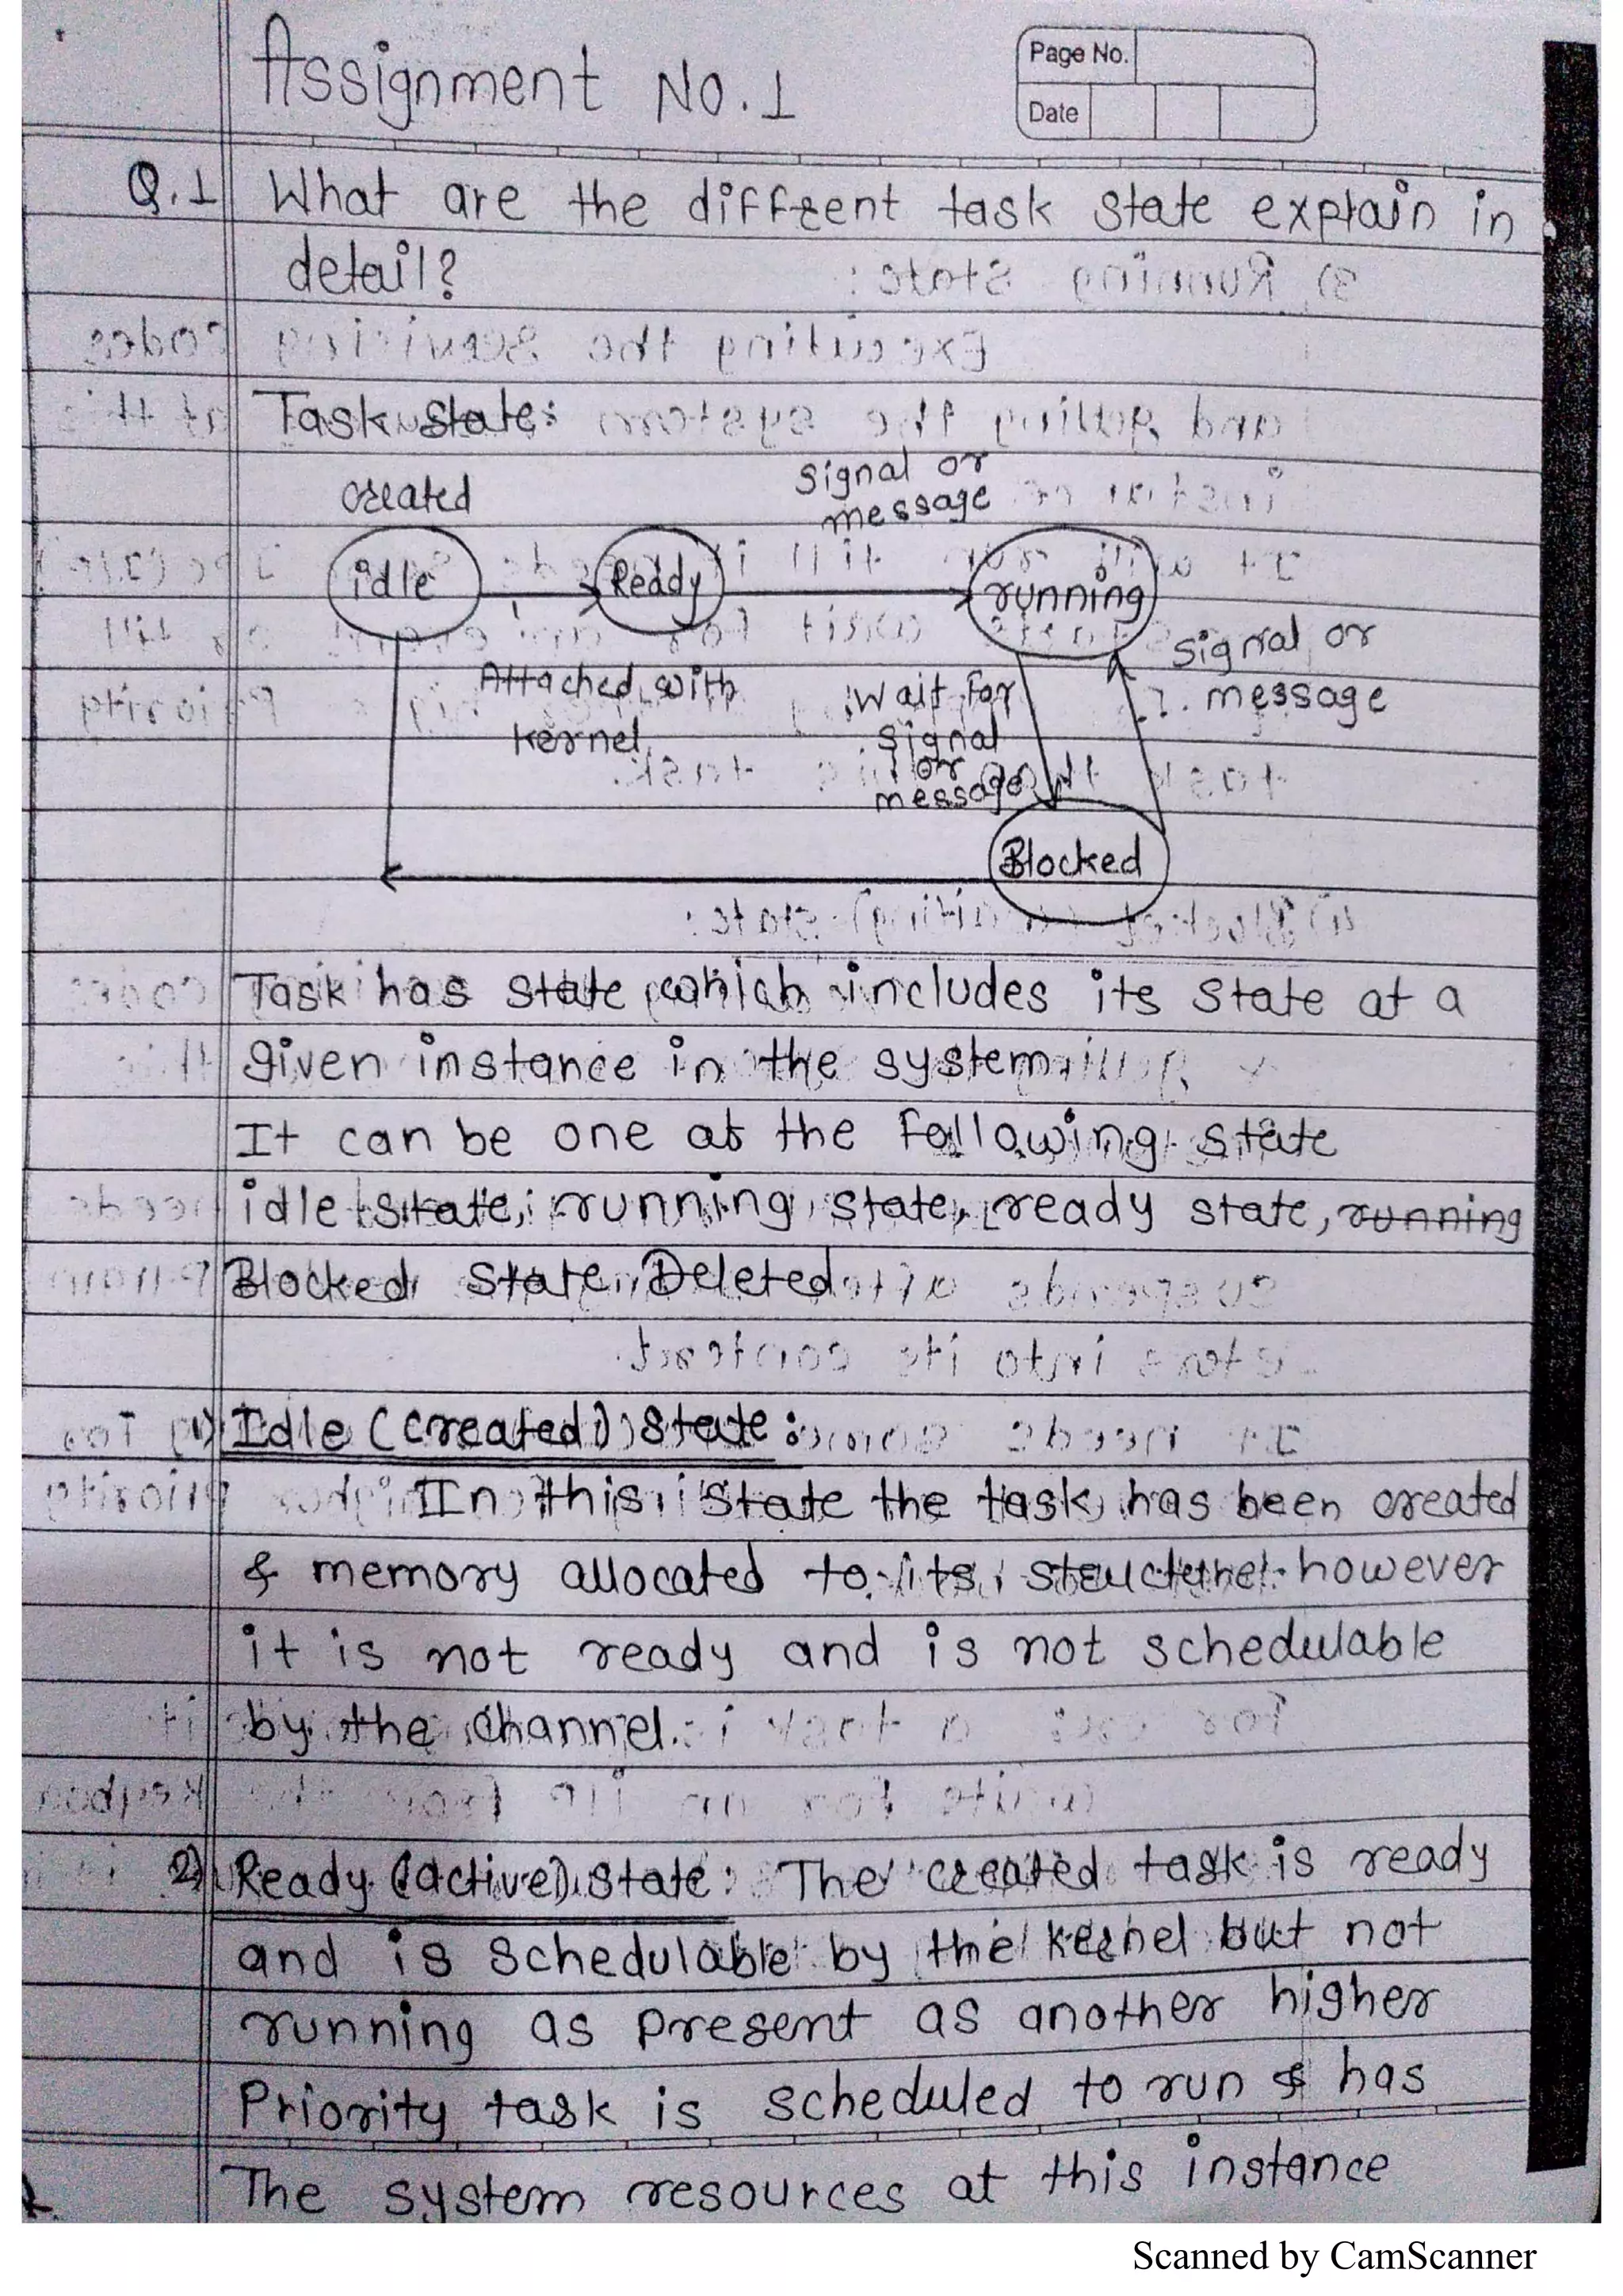 Assignment No. 1
Page No.
Date
Q.1 What are the diffrent task state explain in
detail?
Task state:
created
signal or
message
idle
Ready
running
Attached with
kernel
wait for
signal
or
message
signal or
message
Blocked
Task has state which includes its state at a
given instance in the system
It can be one at the following state
idle state, running state, ready state, running
Blocked state, Deleted
1) Idle (created) state:
In this state the task has been created
& memory allocated to its structure however
it is not ready and is not schedulable
by the channel.
2) Ready (active) state: The created task is ready
and is schedulable by the kernel but not
running as present as another higher
Priority task is scheduled to run & has
The system resources at this instance
Scanned by CamScanner